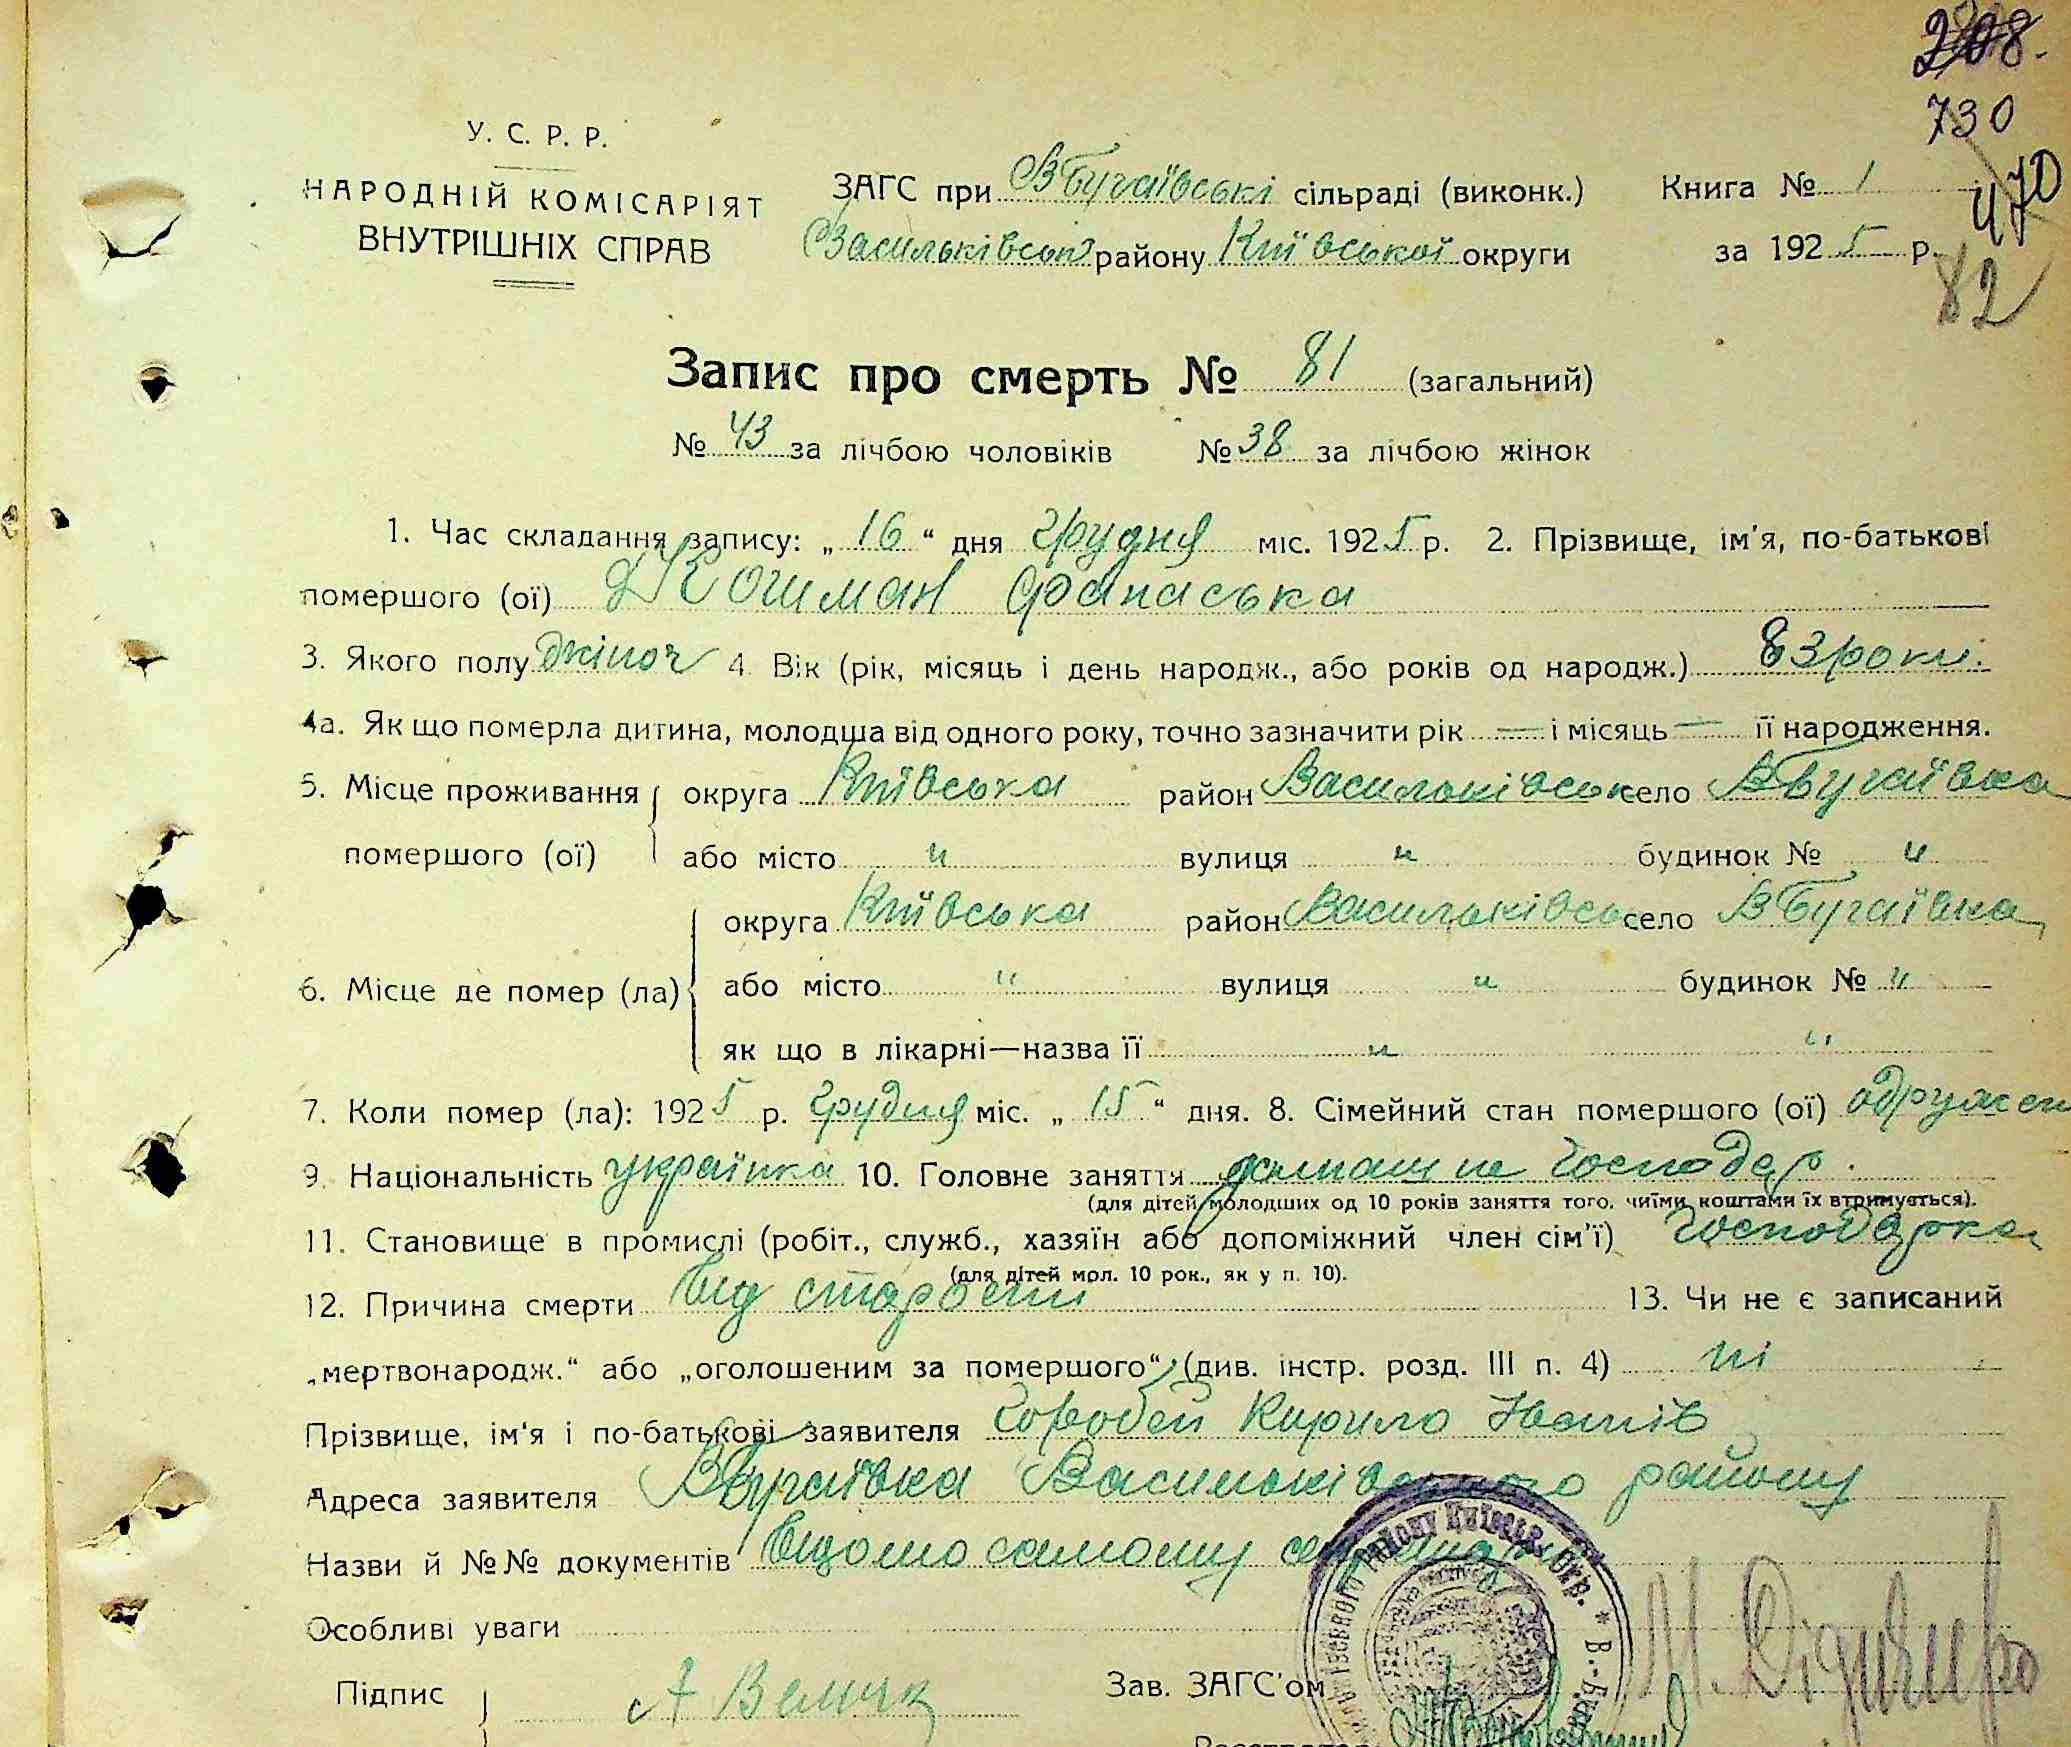 208.
730
У. С. Р. Р.
470
НАРОДНІЙ КОМІСАРІЯТ ЗАГС при ВБугаївські сільраді (виконк.) Книга № 1
ВНУТРІШНІХ СПРАВ Васильківськ району Київської округи за 1925 р.
82
Запис про смерть № 81 (загальний)
№ 43 за лічбою чоловіків № 38 за лічбою жінок
1. Час складання запису: „16“ дня грудня міс. 1925 р. 2. Прізвище, ім'я, по-батькові
помершого (ої) Кошман Фанаська
3. Якого полу жіноч 4. Вік (рік, місяць і день народж., або років од народж.) 83 роки.
4а. Як що померла дитина, молодша від одного року, точно зазначити рік — і місяць — її народження.
5. Місце проживання округа Київська район Васильківськ село ВБугаївка
помершого (ої) або місто " вулиця " будинок № "
округа Київська район Васильківсь село ВБугаївка
6. Місце де помер (ла) або місто " вулиця " будинок № "
як що в лікарні—назва її " "
7. Коли помер (ла): 1925 р. грудня міс. „15“ дня. 8. Сімейний стан помершого (ої) одружен
9. Національність українка 10. Головне заняття господар.
(для дітей молодших од 10 років заняття того, чиїми коштами їх втримується).
11. Становище в промислі (робіт., служб., хазяїн або допоміжний член сім'ї) господарка
(для дітей мол. 10 рок., як у п. 10).
12. Причина смерти від старости 13. Чи не є записаний
„мертвонародж.“ або „оголошеним за помершого“ (див. інстр. розд. III п. 4) ні
Прізвище, ім'я і по-батькові заявителя Горобей Кирило Іванів
Адреса заявителя ВБугаївка Васильківського району
Назви й №№ документів Відомо самому
Особливі уваги
Підпис А Велич Зав. ЗАГС'ом